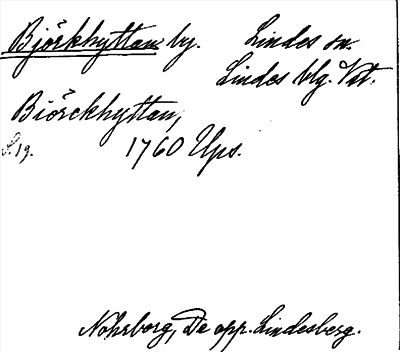 Björkhyttan by. Lindes sn.
Lindes blg. Vstm.
Biörckhyttan,
S. 19. 1760 Ups.
Nohrborg, De opp. Lindesberg.